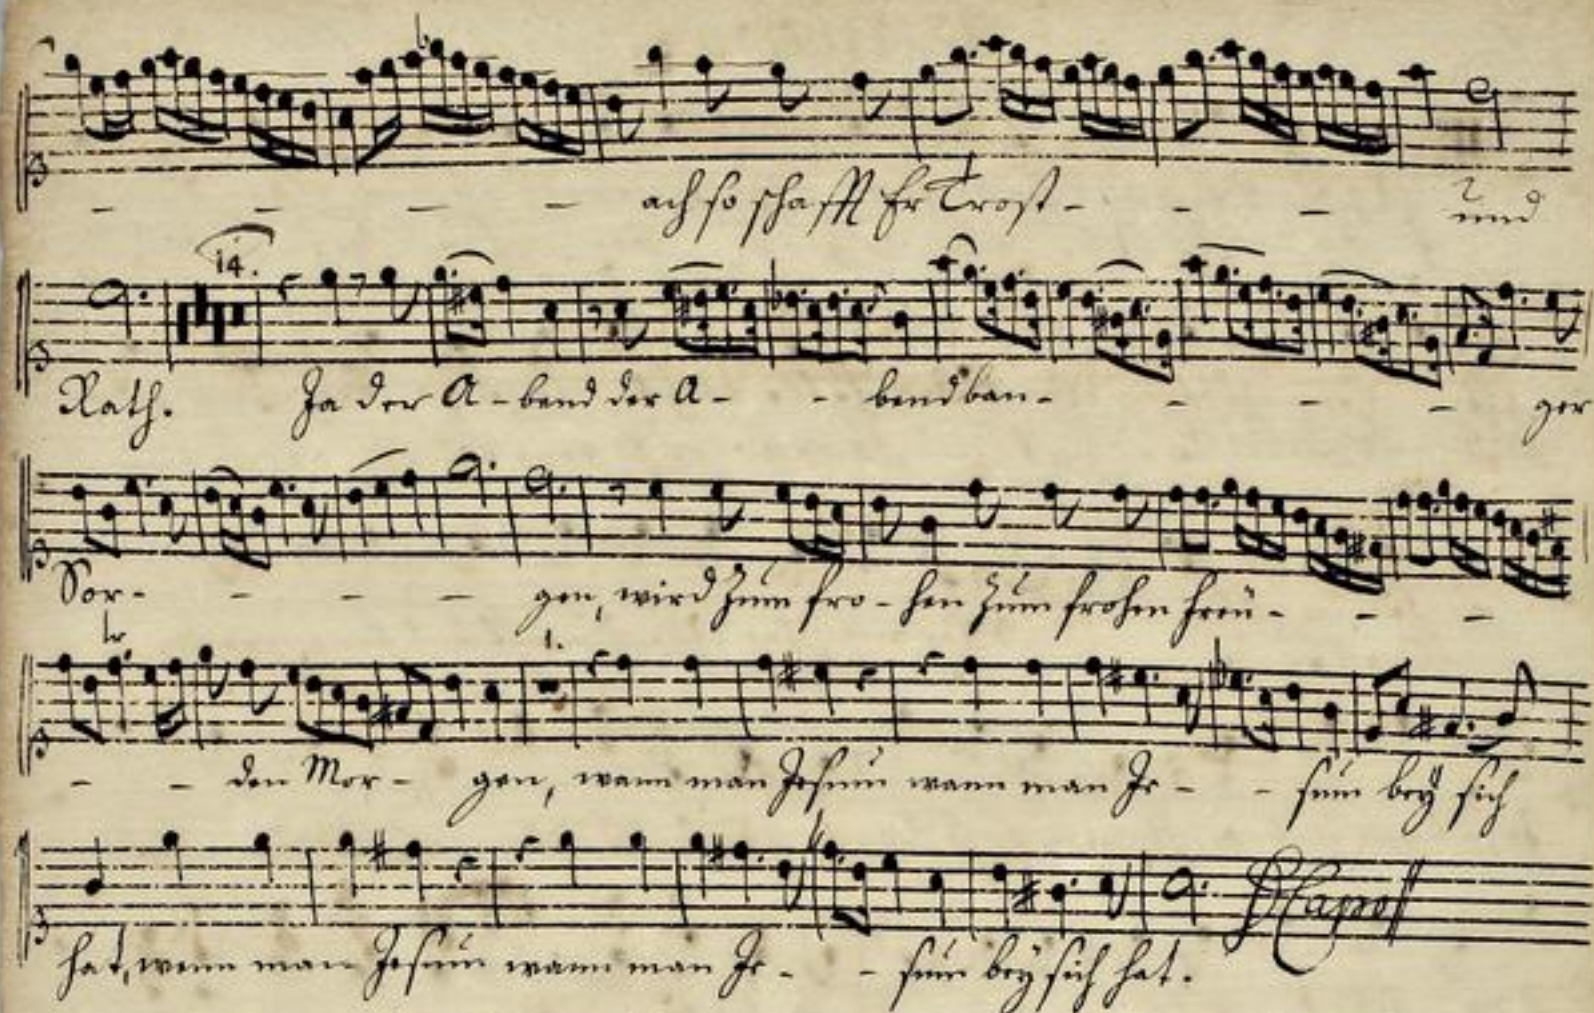 - - - - ach so schafft Er Trost - - - und
14.
Rath. Ja der A - bend der A - - bend ban - - - - ger
Sor - - - - gen, wird zum fro - hen zum frohen Freü - - -
tr 1.
- - den Mor - gen, wann man Jesum wann man Je - - sum bey sich
hat, wenn man Jesum wann man Je - - sum bey sich hat. D Capo